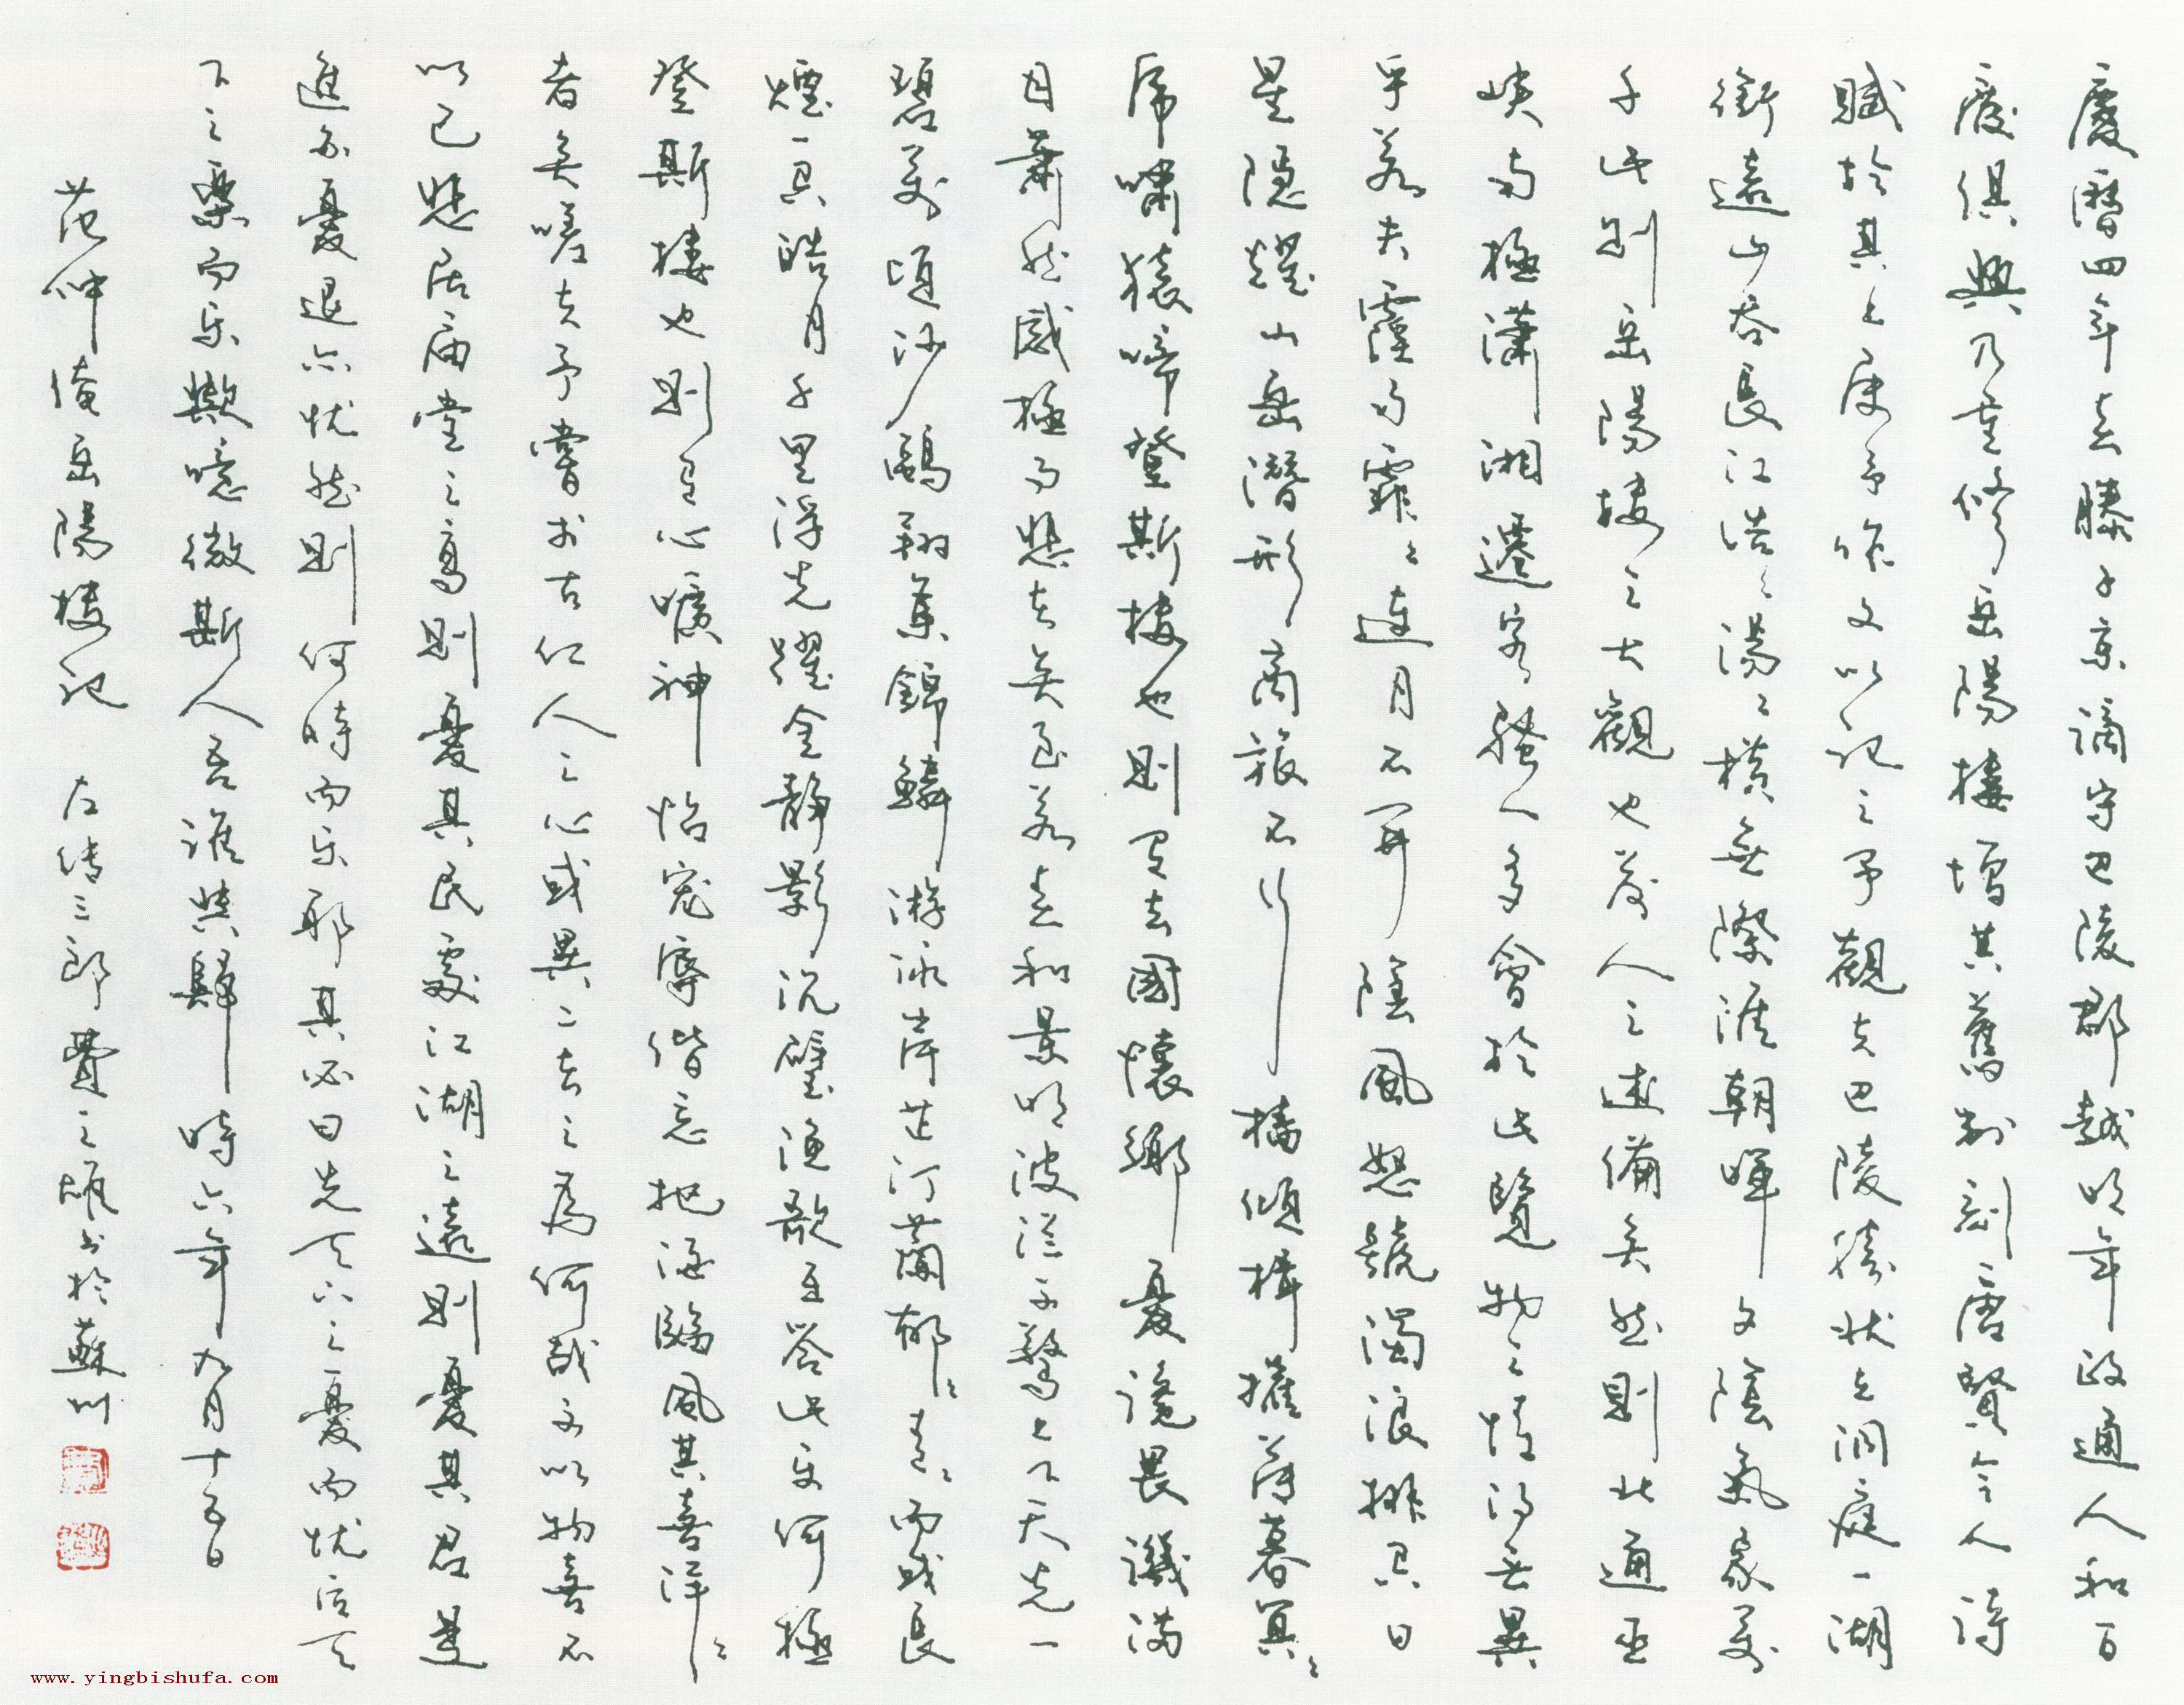 慶曆四年春滕子京謫守巴陵郡越明年政通人和百
廢俱興乃重修岳陽樓增其舊制刻唐賢今人詩
賦於其上屬予作文以記之予觀夫巴陵勝狀在洞庭一湖
銜遠山吞長江浩々湯々橫無際涯朝暉夕陰氣象萬
千此則岳陽樓之大觀也前人之述備矣然則北通巫
峽南極瀟湘遷客騷人多會於此覽物之情得無異
乎若夫霪雨霏々連月不開陰風怒號濁浪排空日
星隱耀山岳潛形商旅不行檣傾楫摧薄暮冥々
虎嘯猿啼登斯樓也則有去國懷鄉憂讒畏譏滿
目蕭然感極而悲者矣至若春和景明波瀾不驚上下天光一
碧萬頃沙鷗翔集錦鱗游泳岸芷汀蘭郁々青々而或長
煙一空皓月千里浮光躍金靜影沉璧漁歌互答此樂何極
登斯樓也則有心曠神怡寵辱偕忘把酒臨風其喜洋々
者矣嗟夫予嘗求古仁人之心或異二者之為何哉不以物喜不
以己悲居廟堂之高則憂其民處江湖之遠則憂其君是
進亦憂退亦忧然則何時而乐耶其必曰先天下之憂而忧后天
下之樂而乐歟噫微斯人吾誰與歸 時六年九月十五日
范仲淹岳陽樓記 左倩三郎費之雄書於蘇州
www.yingbishufa.com